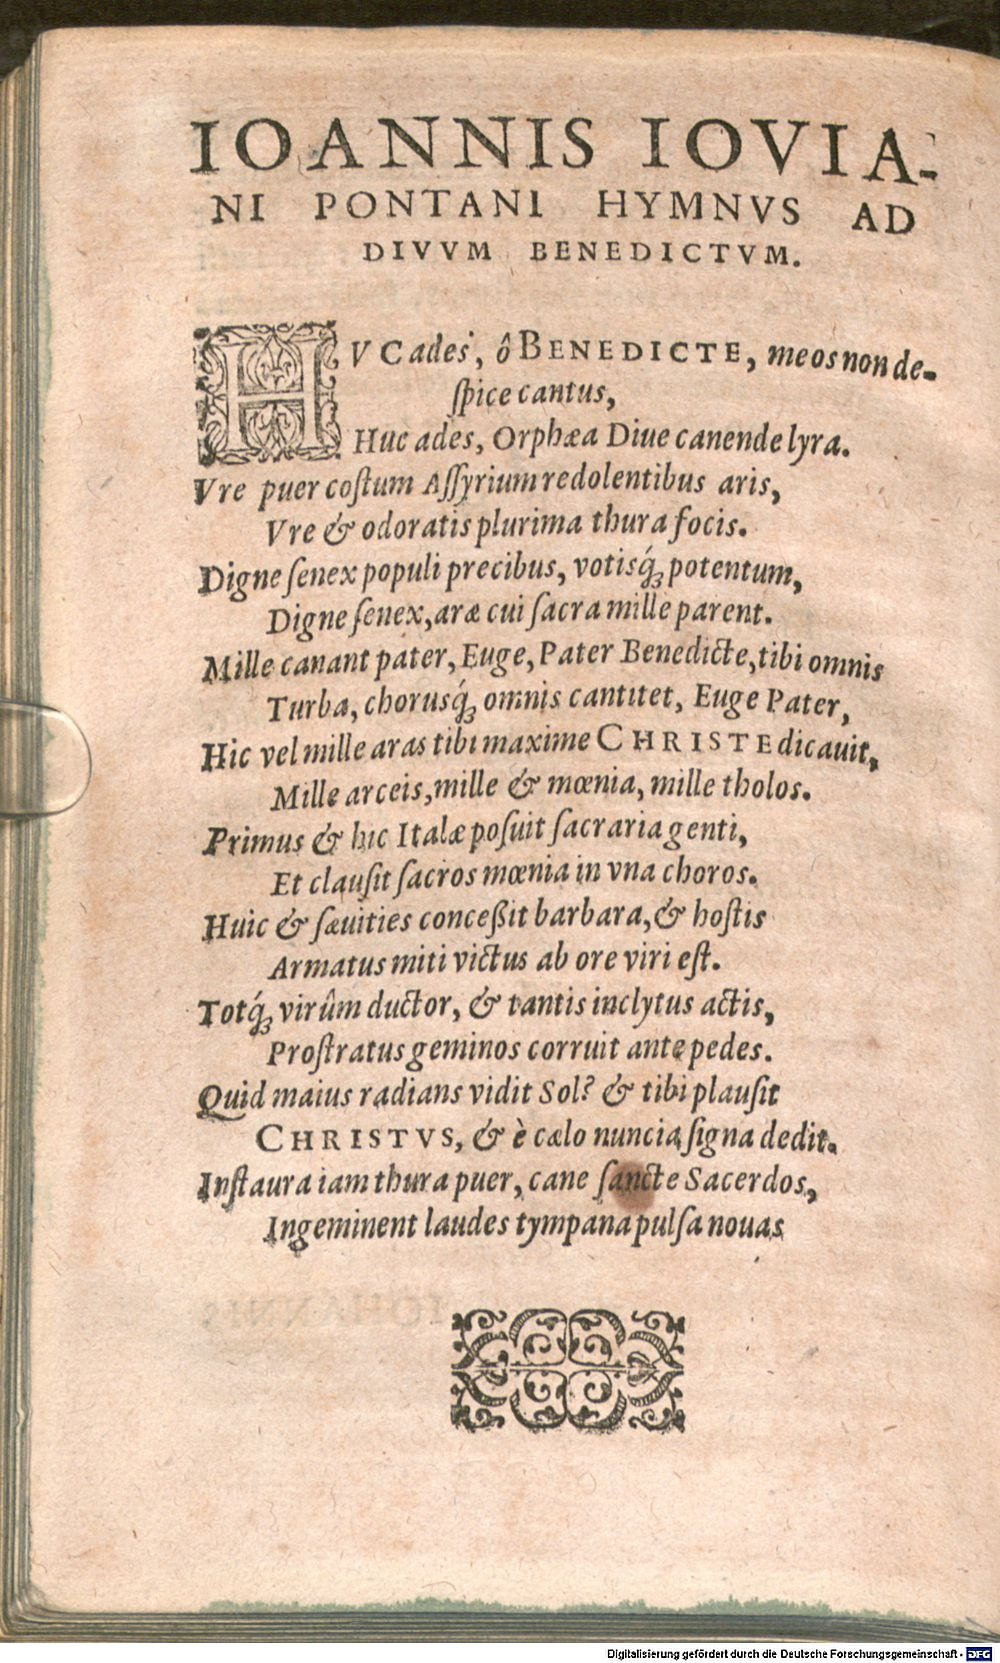 IOANNIS IOVIA-
NI PONTANI HYMNVS AD
DIVVM BENEDICTVM.
HVC ades, ô BENEDICTE, meos non de-
ſpice cantus,
Huc ades, Orphæa Diue canende lyra.
Vre puer coſtum Aſſyrium redolentibus aris,
Vre & odoratis plurima thura focis.
Digne ſenex populi precibus, votisq́; potentum,
Digne ſenex, aræ cui ſacra mille parent.
Mille canant pater, Euge, Pater Benedicte, tibi omnis
Turba, chorusq́; omnis cantitet, Euge Pater,
Hic vel mille aras tibi maxime CHRISTE dicauit,
Mille arceis, mille & mœnia, mille tholos.
Primus & hic Italæ poſuit ſacraria genti,
Et clauſit ſacros mœnia in vna choros.
Huic & ſæuities conceßit barbara, & hoſtis
Armatus miti victus ab ore viri eſt.
Totq́; virûm ductor, & tantis inclytus actis,
Proſtratus geminos corruit ante pedes.
Quid maius radians vidit Sol? & tibi plauſit
CHRISTVS, & è cælo nuncia ſigna dedit.
Inſtaura iam thura puer, cane ſancte Sacerdos,
Ingeminent laudes tympana pulſa nouas
Digitalisierung gefördert durch die Deutsche Forschungsgemeinschaft - DFG